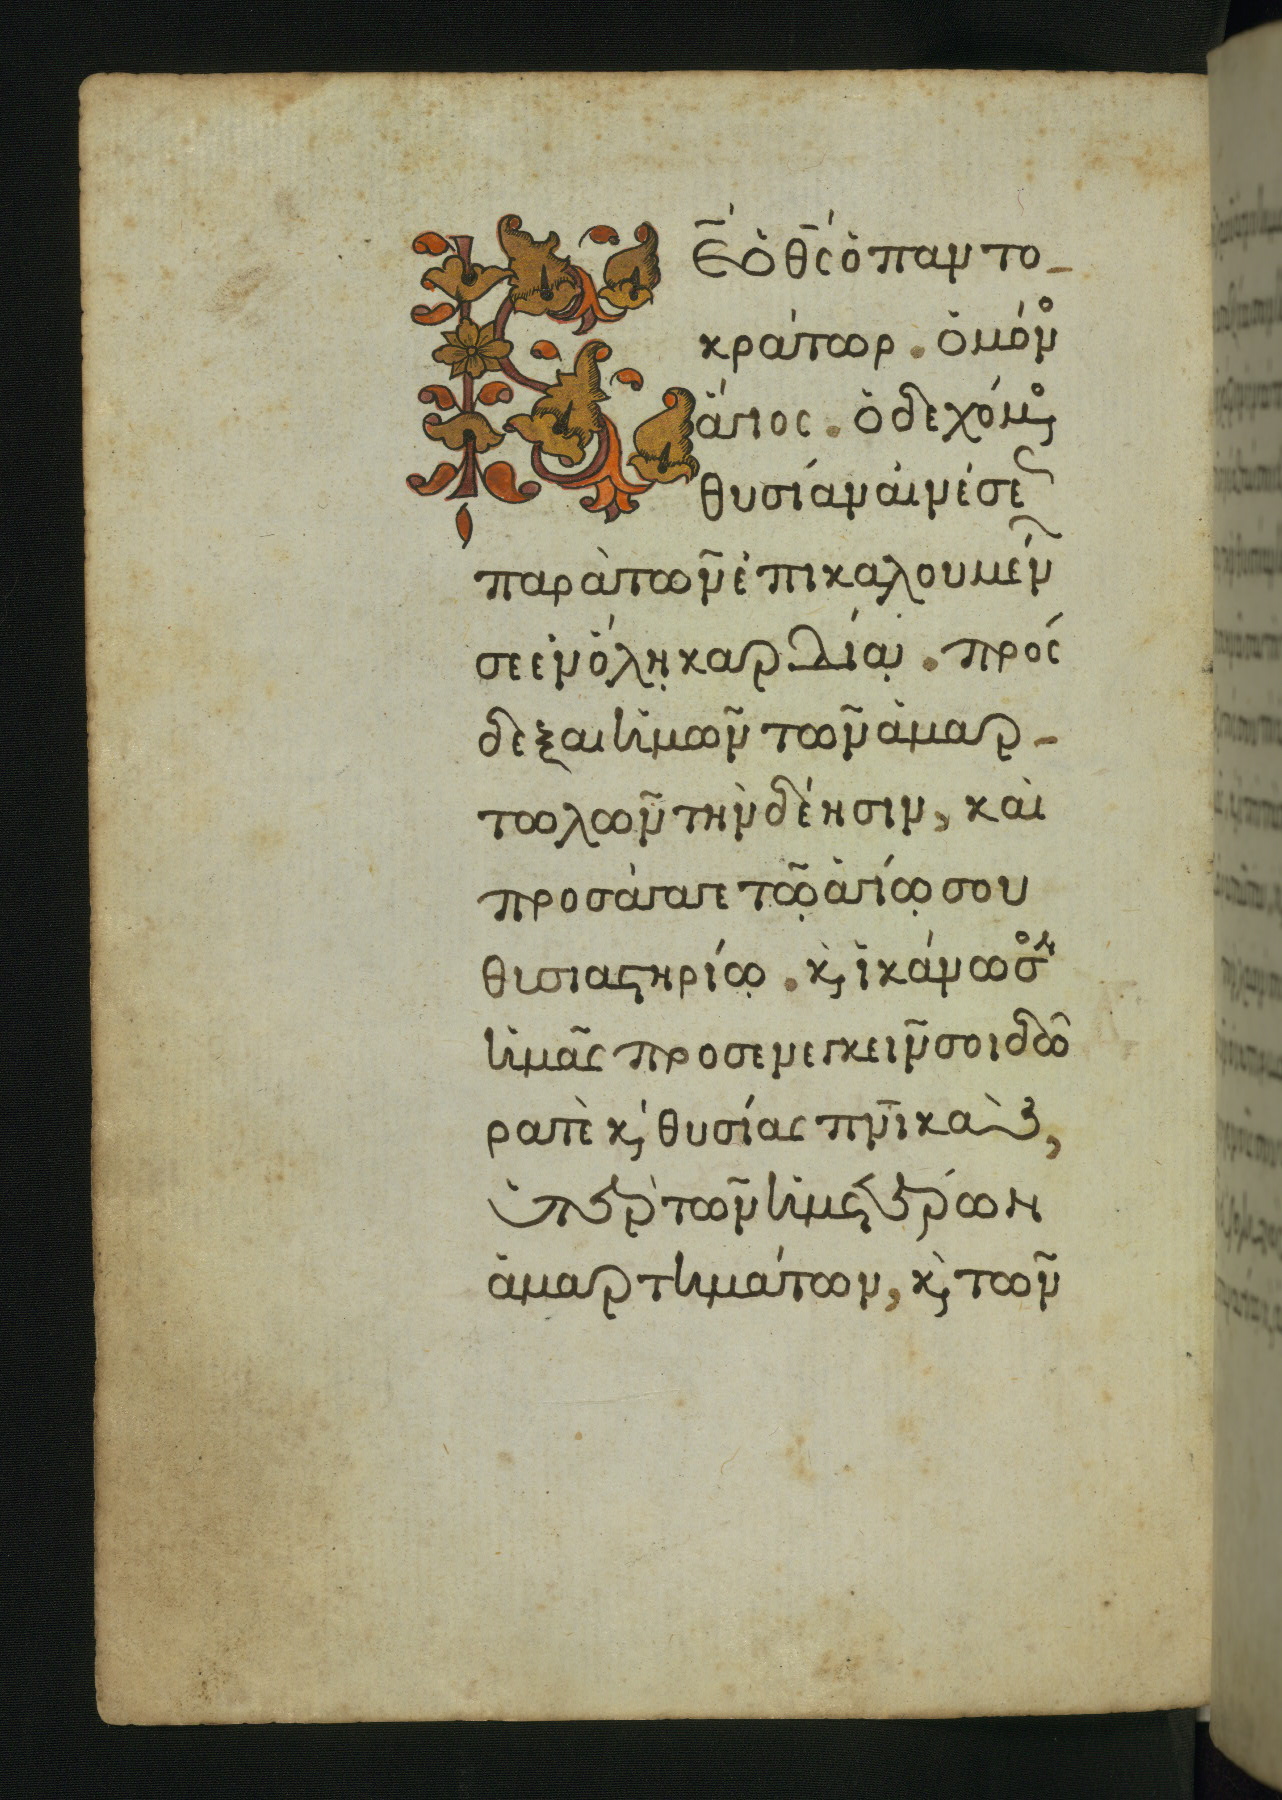 Κε̄ ὁ θς̄ ὁ παντο-
κράτωρ. ὁ μόνο
ἅγιος. ὁ δεχόμενο
θυσίαν αἰνέσε
παρὰ τῶν ἐπικαλουμέν
σε ἐν ὅλῃ καρδίᾳ. πρόσ
δεξαι ἡμῶν τῶν ἁμαρ-
τωλῶν τὴν δέησιν, καὶ
προσάγαγε τῷ ἁγίῳ σου
θισιαστηρίῳ. κ̀ ἱκάνωσο
ἡμᾶς προσενεγκεῖν σοι δῶ
ρα τὲ κ̀ θυσίας πν̄ικὰς,
ὑπὲρ τῶν ἡμετέρων
ἁμαρτημάτων, κ̀ τῶν